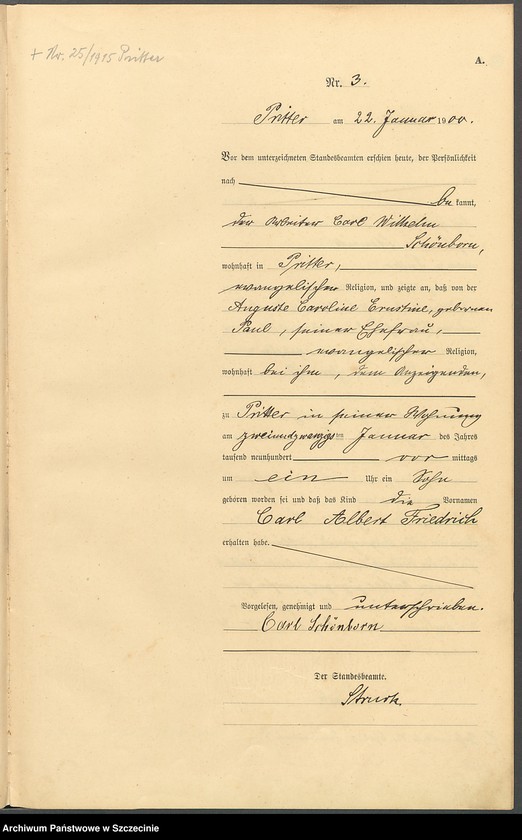 + Nr. 25/1915 Pritter
A.
Nr. 3.
Pritter am 22. Januar 1900.
Vor dem unterzeichneten Standesbeamten erschien heute, der Persönlichkeit
nach
bekannt,
der Arbeiter Carl Wilhelm
Schönborn,
wohnhaft in Pritter,
evangelischer Religion, und zeigte an, daß von der
Auguste Caroline Ernstine, geborenen
Paul, seiner Ehefrau,
evangelischer Religion,
wohnhaft bei ihm, dem Anzeigenden,
zu Pritter in seiner Wohnung
am zweiundzwanzigsten Januar des Jahres
tausend neunhundert vor mittags
um ein Uhr ein Sohn
geboren worden sei und daß das Kind die Vornamen
Carl Albert Friedrich
erhalten habe.
Vorgelesen, genehmigt und unterschrieben.
Carl Schönborn
Der Standesbeamte.
Archiwum Państwowe w Szczecinie